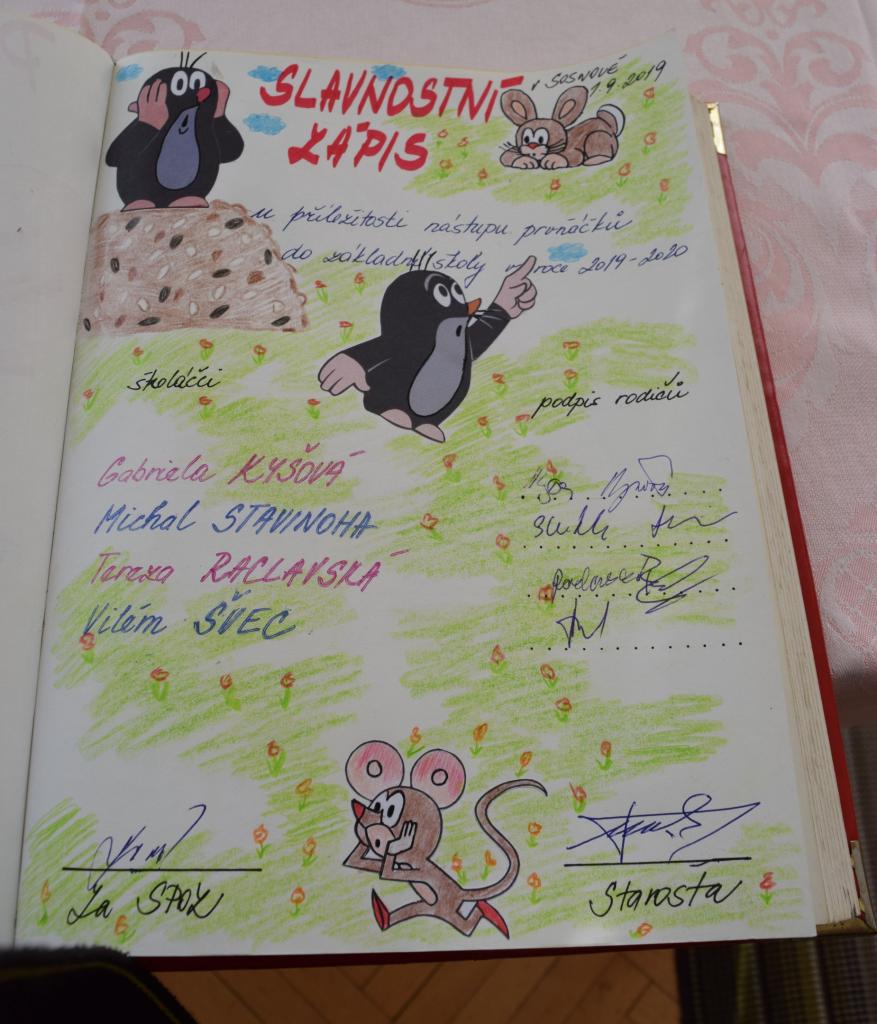 SLAVNOSTNÍ
ZÁPIS
v SOSNOVÉ
1.9.2019
u příležitosti nástupu prvňáčků
do základní školy v roce 2019-2020
školáčci
podpis rodičů
Gabriela KYŠOVÁ
Michal STAVINOHA
Tereza RACLAVSKÁ
Vilém ŠVEC
Za SPOZ
Starosta